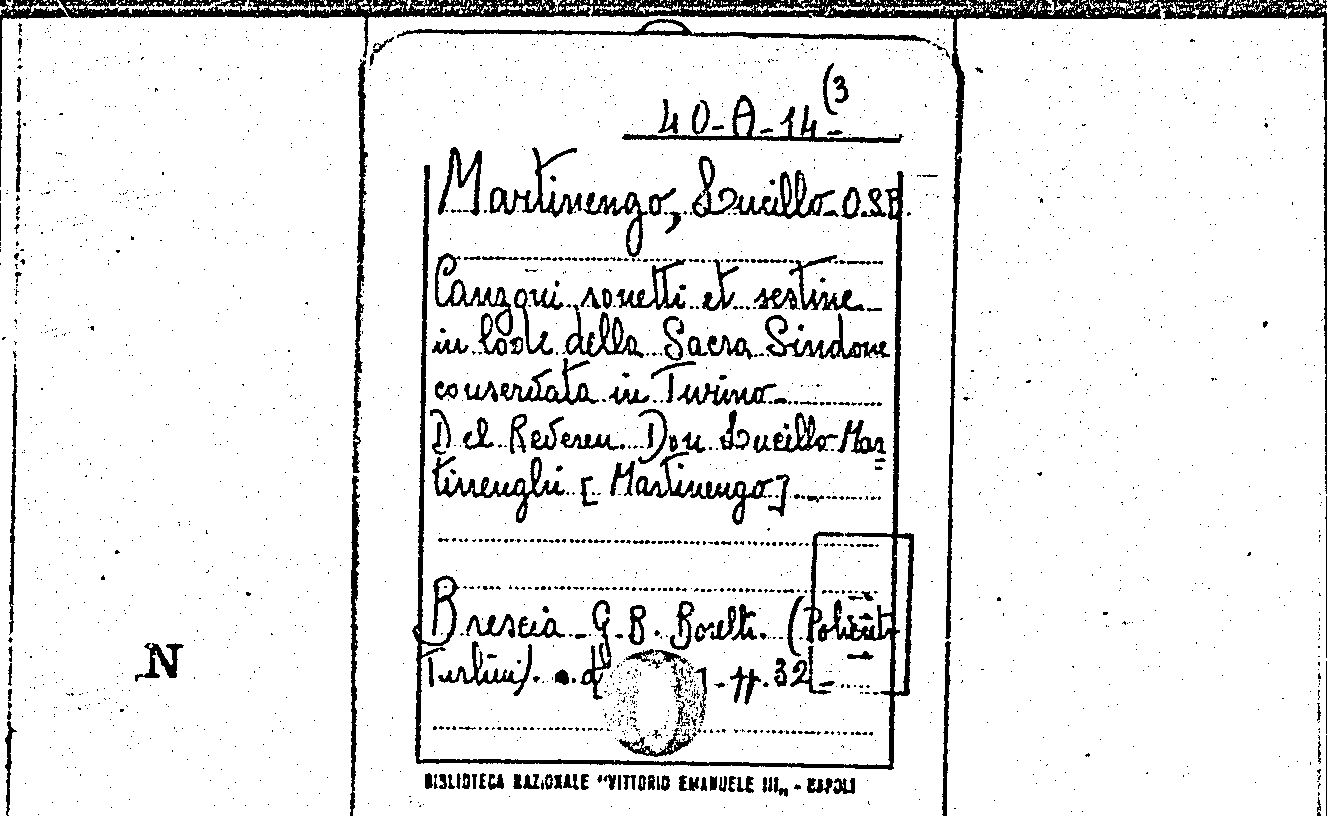 40-A-14-(3
Martinengo, Lucillo. O.S.B.
Canzoni sonetti et sestine
in lode della Sacra Sindone
conservata in Turino-
Del Reveren. Don Lucillo Mar=
tinenghi [Martinengo].
Brescia. G. B. Borelli. (Policreti
Turlini). pp. 32-
N
BIBLIOTECA NAZIONALE "VITTORIO EMANUELE III„ - NAPOLI